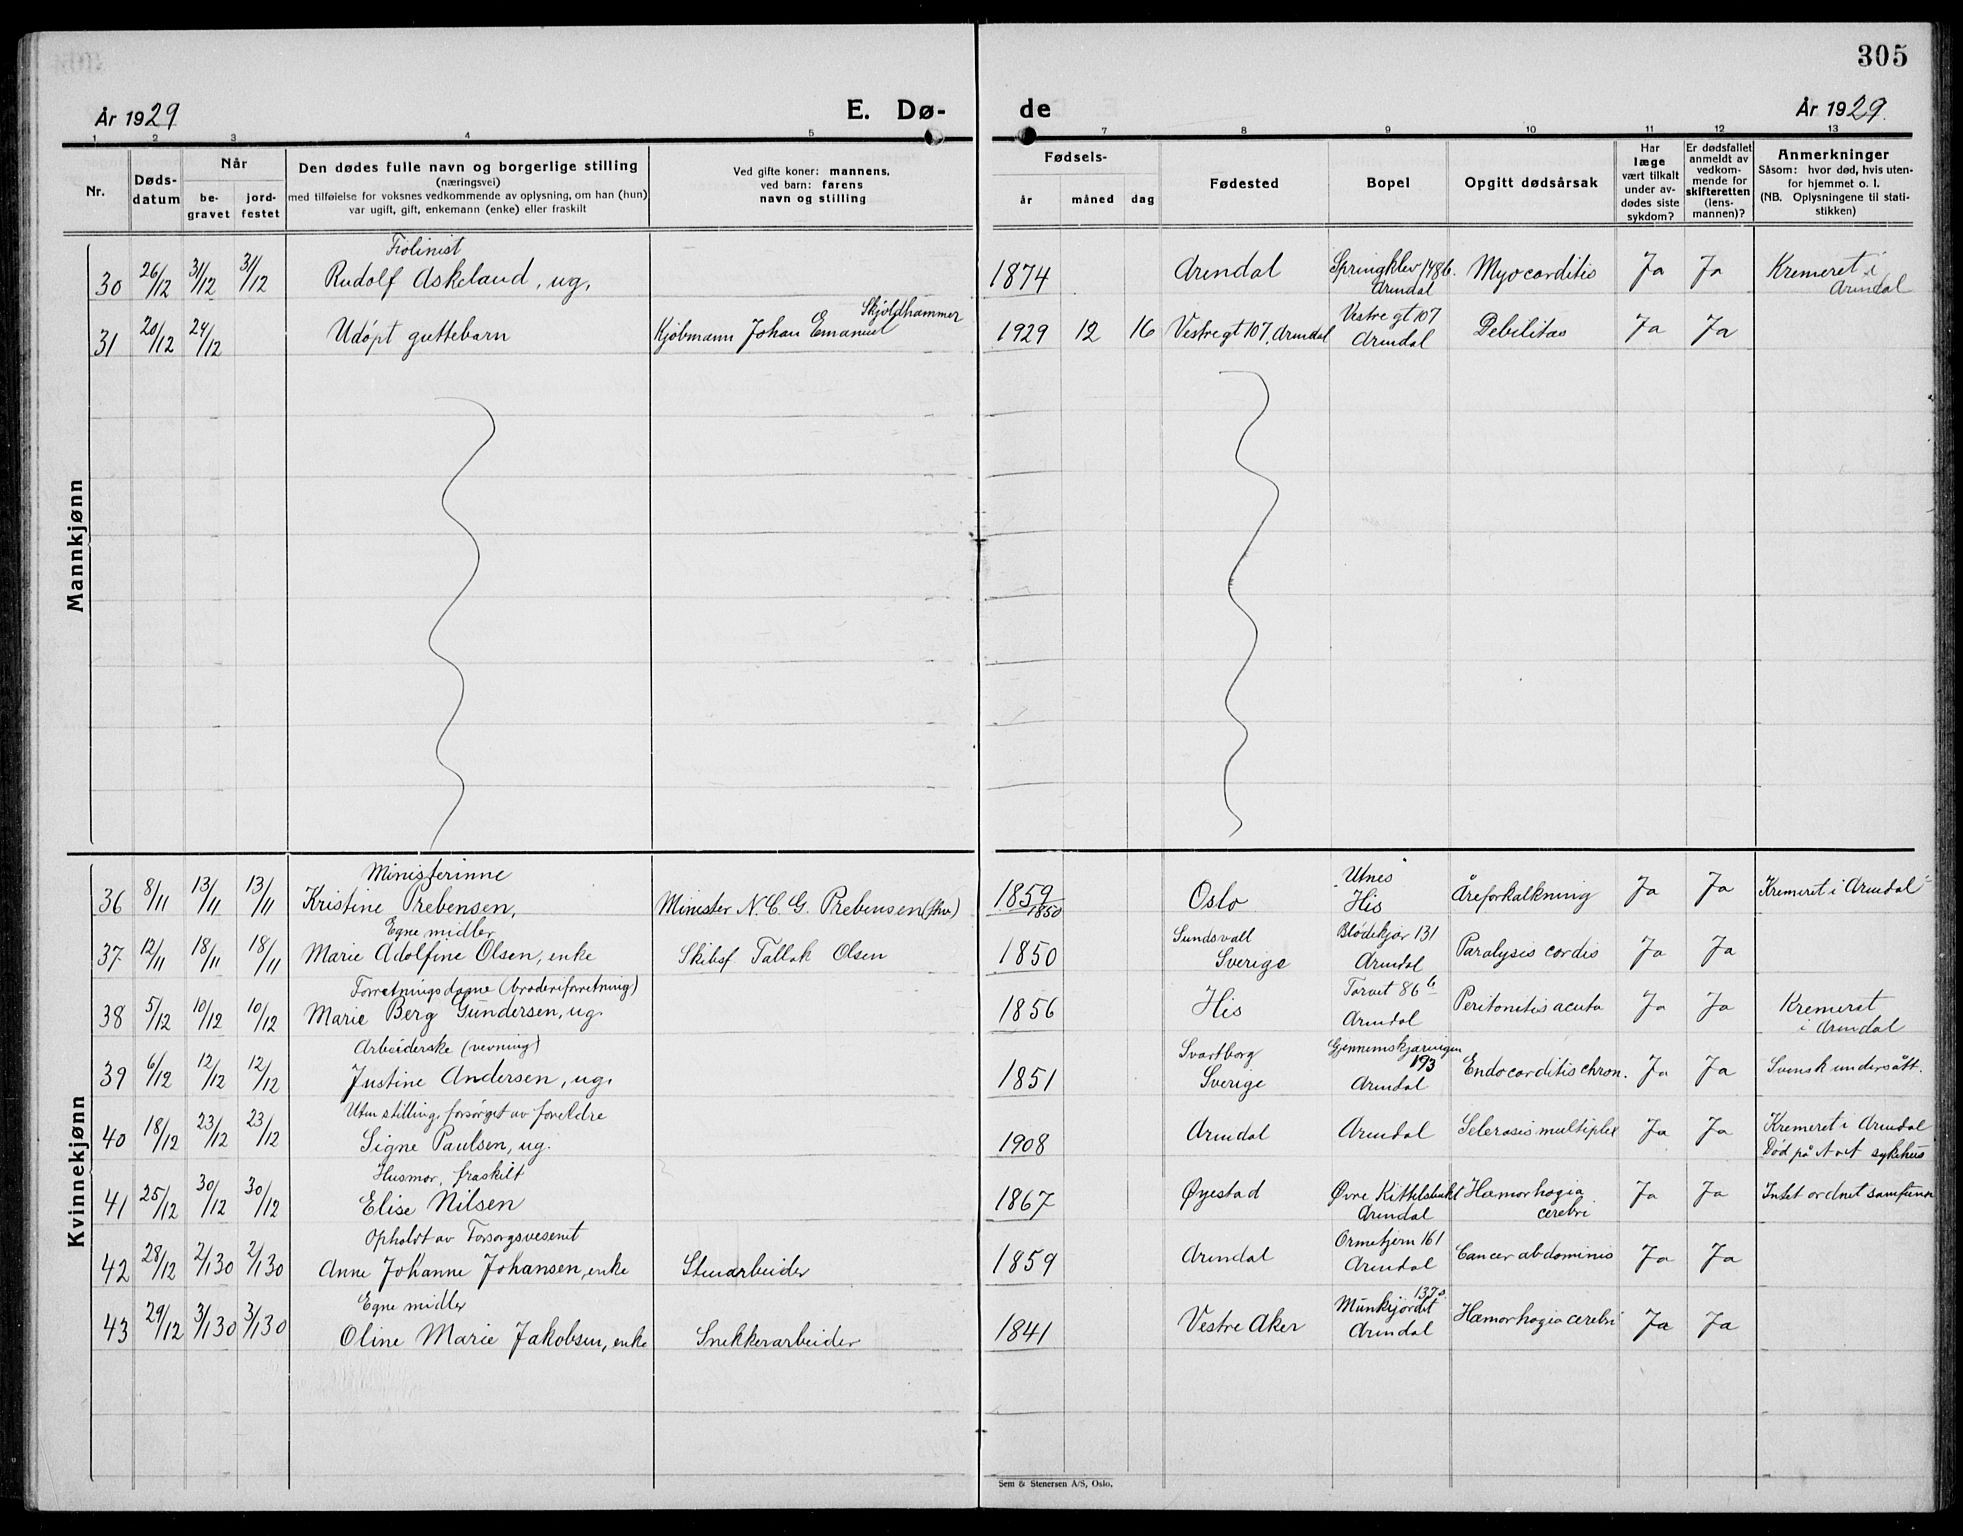 305
År 1929
E. Dø-
de
År 1929.
1 2 3 4 5 7 8 9 10 11 12 13
Nr.
Døds-
datum
Når
be-
gravet
jord-
festet
Den dødes fulle navn og borgerlige stilling
(næringsvei)
med tilføielse for voksnes vedkommende av oplysning, om han (hun)
var ugift, gift, enkemann (enke) eller fraskilt
Ved gifte koner: mannens,
ved barn: farens
navn og stilling
Fødsels-
år måned dag
Fødested
Bopel
Opgitt dødsårsak
Har
læge
vært tilkalt
under av-
dødes siste
sykdom?
Er dødsfallet
anmeldt av
vedkom-
mende for
skifteretten
(lens-
mannen)?
Anmerkninger
Såsom: hvor død, hvis uten-
for hjemmet o. l.
(NB. Oplysningene til stati-
stikken)
Mannkjønn
Fiolinist
30 26/12 31/12 31/12 Rudolf Askeland, ug, 1874 Arendal Springklev 1486. Arendal Myocarditis Ja Ja Kremeret i Arendal
31 20/12 24/12 Udøpt guttebarn Kjøbmann Johan Emanuel Skjoldhammer 1929 12 16 Vestregt 107, Arendal Vestre gt 107 Arendal Debilitas Ja Ja
Kvinnekjønn
Ministerinne
36 8/11 13/11 13/11 Kristine Prebensen, Minister N. C. G. Prebensen (fhv) 1859 1850 Oslo Utnes His Åreforkalkning Ja Ja Kremeret i Arendal
Egne midler
37 12/11 18/11 18/11 Marie Adolfine Olsen, enke Skibsf Tallak Olsen 1850 Sundsvall Sverige Blødekjær 131 Arendal Paralysis cordis Ja Ja
Forretningsdame (broderiforretning)
38 5/12 10/12 10/12 Marie Berg Gundersen, ug. 1856 His Torvet 86b Arendal Peritonitis acuta Ja Ja Kremeret i Arendal
Arbeiderske (vevning)
39 6/12 12/12 12/12 Justine Andersen, ug. 1851 Svartborg Sverige Gjennemskjæringen 193 Arendal Endocarditis chron. Ja Ja Svensk undersått.
Uten stilling, forsørget av foreldre
40 18/12 23/12 23/12 Signe Paulsen, ug. 1908 Arendal Arendal Selerosis multiplex Ja Ja Kremeret i Arendal Død på A.A sykehus
Husmor, fraskilt
41 25/12 30/12 30/12 Elise Nilsen 1867 Øyestad Øvre Kittelsbukt Arendal Hæmorhagia cerebri Ja Ja Intet ordnet samfunn
Opholdt av Forsorgsvesenet
42 28/12 2/1 30 2/1 30 Anne Johanne Johansen, enke Stenarbeider 1859 Arendal Ormetjern 161 Arendal Cancer abdominis Ja Ja
Egne midler
43 29/12 3/1 30 3/1 30 Oline Marie Jakobsen, enke Snekkerarbeider 1841 Vestre Aker Munkejordet Arendal Hæmorhagia cerebri Ja Ja
Sem & Stenersen A/S, Oslo.